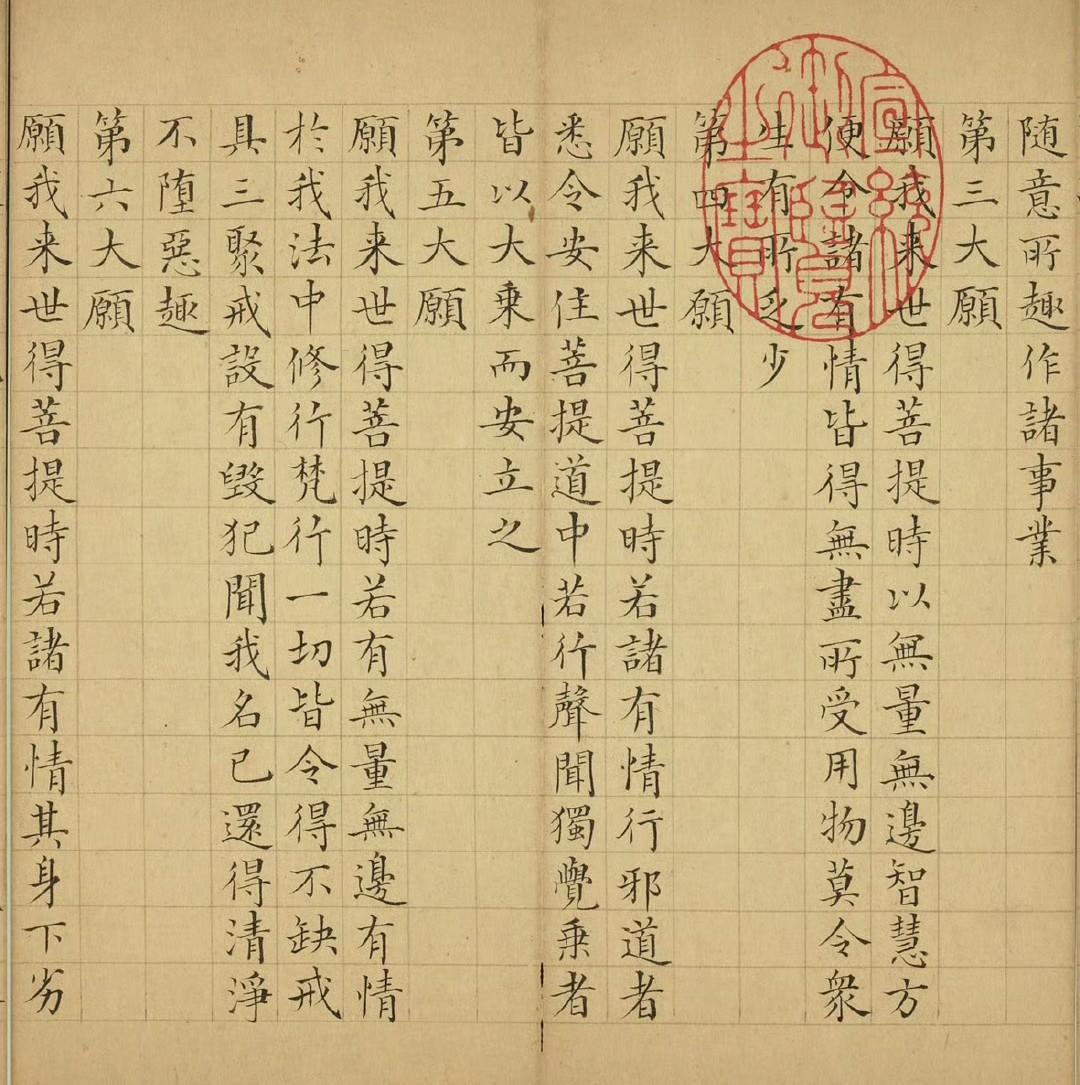 随意所趣作諸事業
第三大願
願我来世得菩提時以無量無邊智慧方
便令諸有情皆得無盡所受用物莫令衆
生有所乏少
第四大願
願我来世得菩提時若諸有情行邪道者
悉令安住菩提道中若行聲聞獨覺乗者
皆以大乗而安立之
第五大願
願我来世得菩提時若有無量無邊有情
於我法中修行梵行一切皆令得不缺戒
具三聚戒設有毀犯聞我名已還得清淨
不墮惡趣
第六大願
願我来世得菩提時若諸有情其身下劣
宣統
御覽
之寶